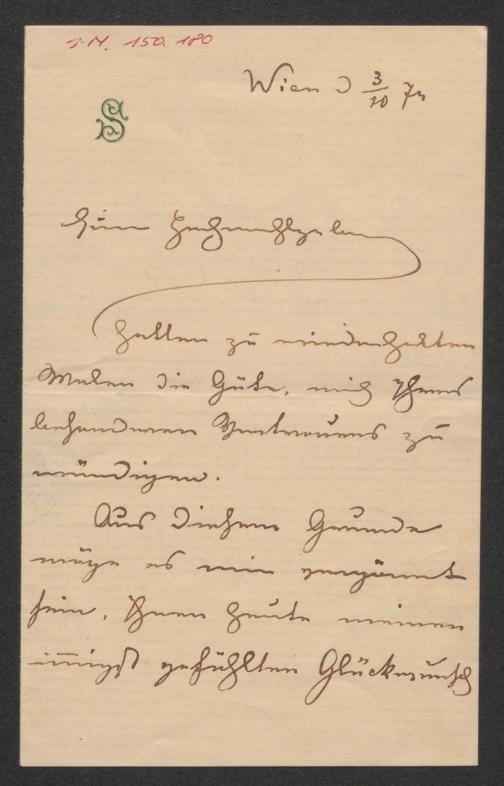 J.N. 150.180
Wien d 3/10 74
S
Euer Hochwohlgeboren
hatten zu wiederholten
Malen die Güte, mich Ihres
besonderen Vertrauens zu
würdigen.
Aus diesem Grunde
möge es mir vergönnt
sein, Ihnen heute meinen
innigst gefühlten Glückwunsch